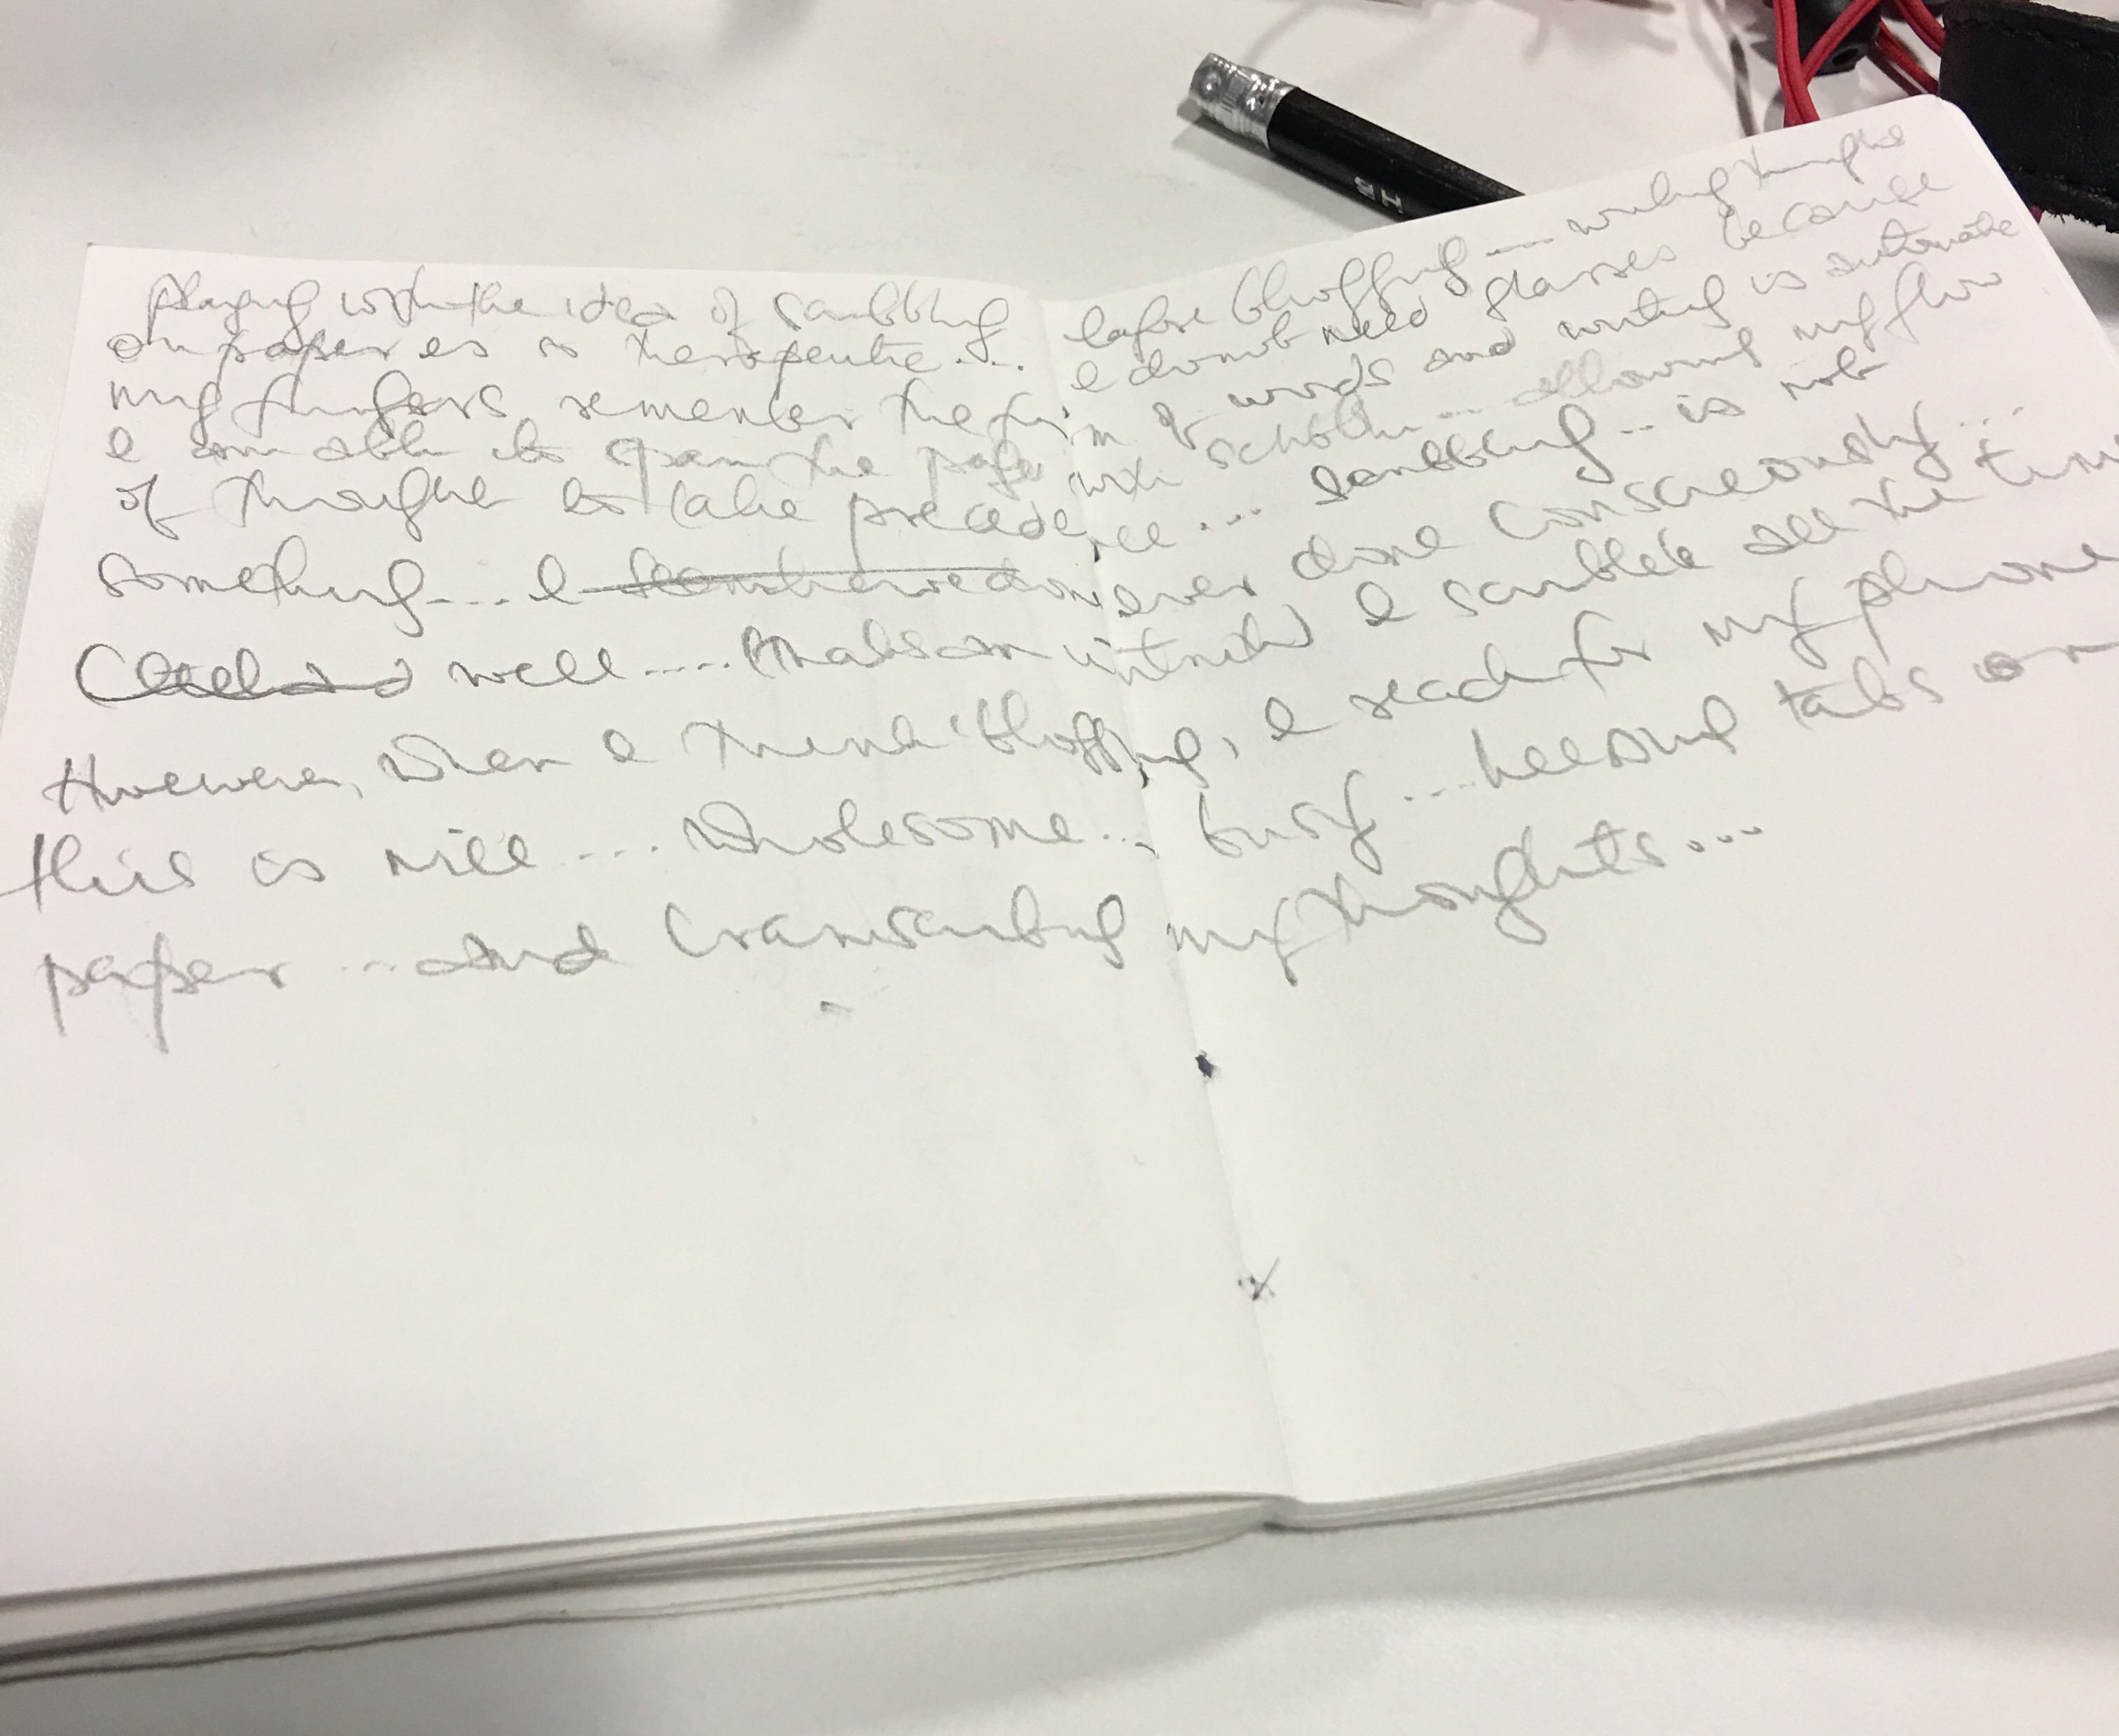 Playing with the idea of scribbling before blogging .... writing thoughts
on paper is therapeutic .... I do not need glasses because
my fingers remember the form of words and writing is automatic
I am able to span the page with ... allowing my flow
of thought to take precedence ... scribbling ... is not
something .... I never done consciously ...
well .... that's an untruth I scribble all the time
However, when I think 'blogging, I reach for my phone
this is nice .... wholesome ... busy .... keeping tabs on
paper ... and transcribing my thoughts ...
HB